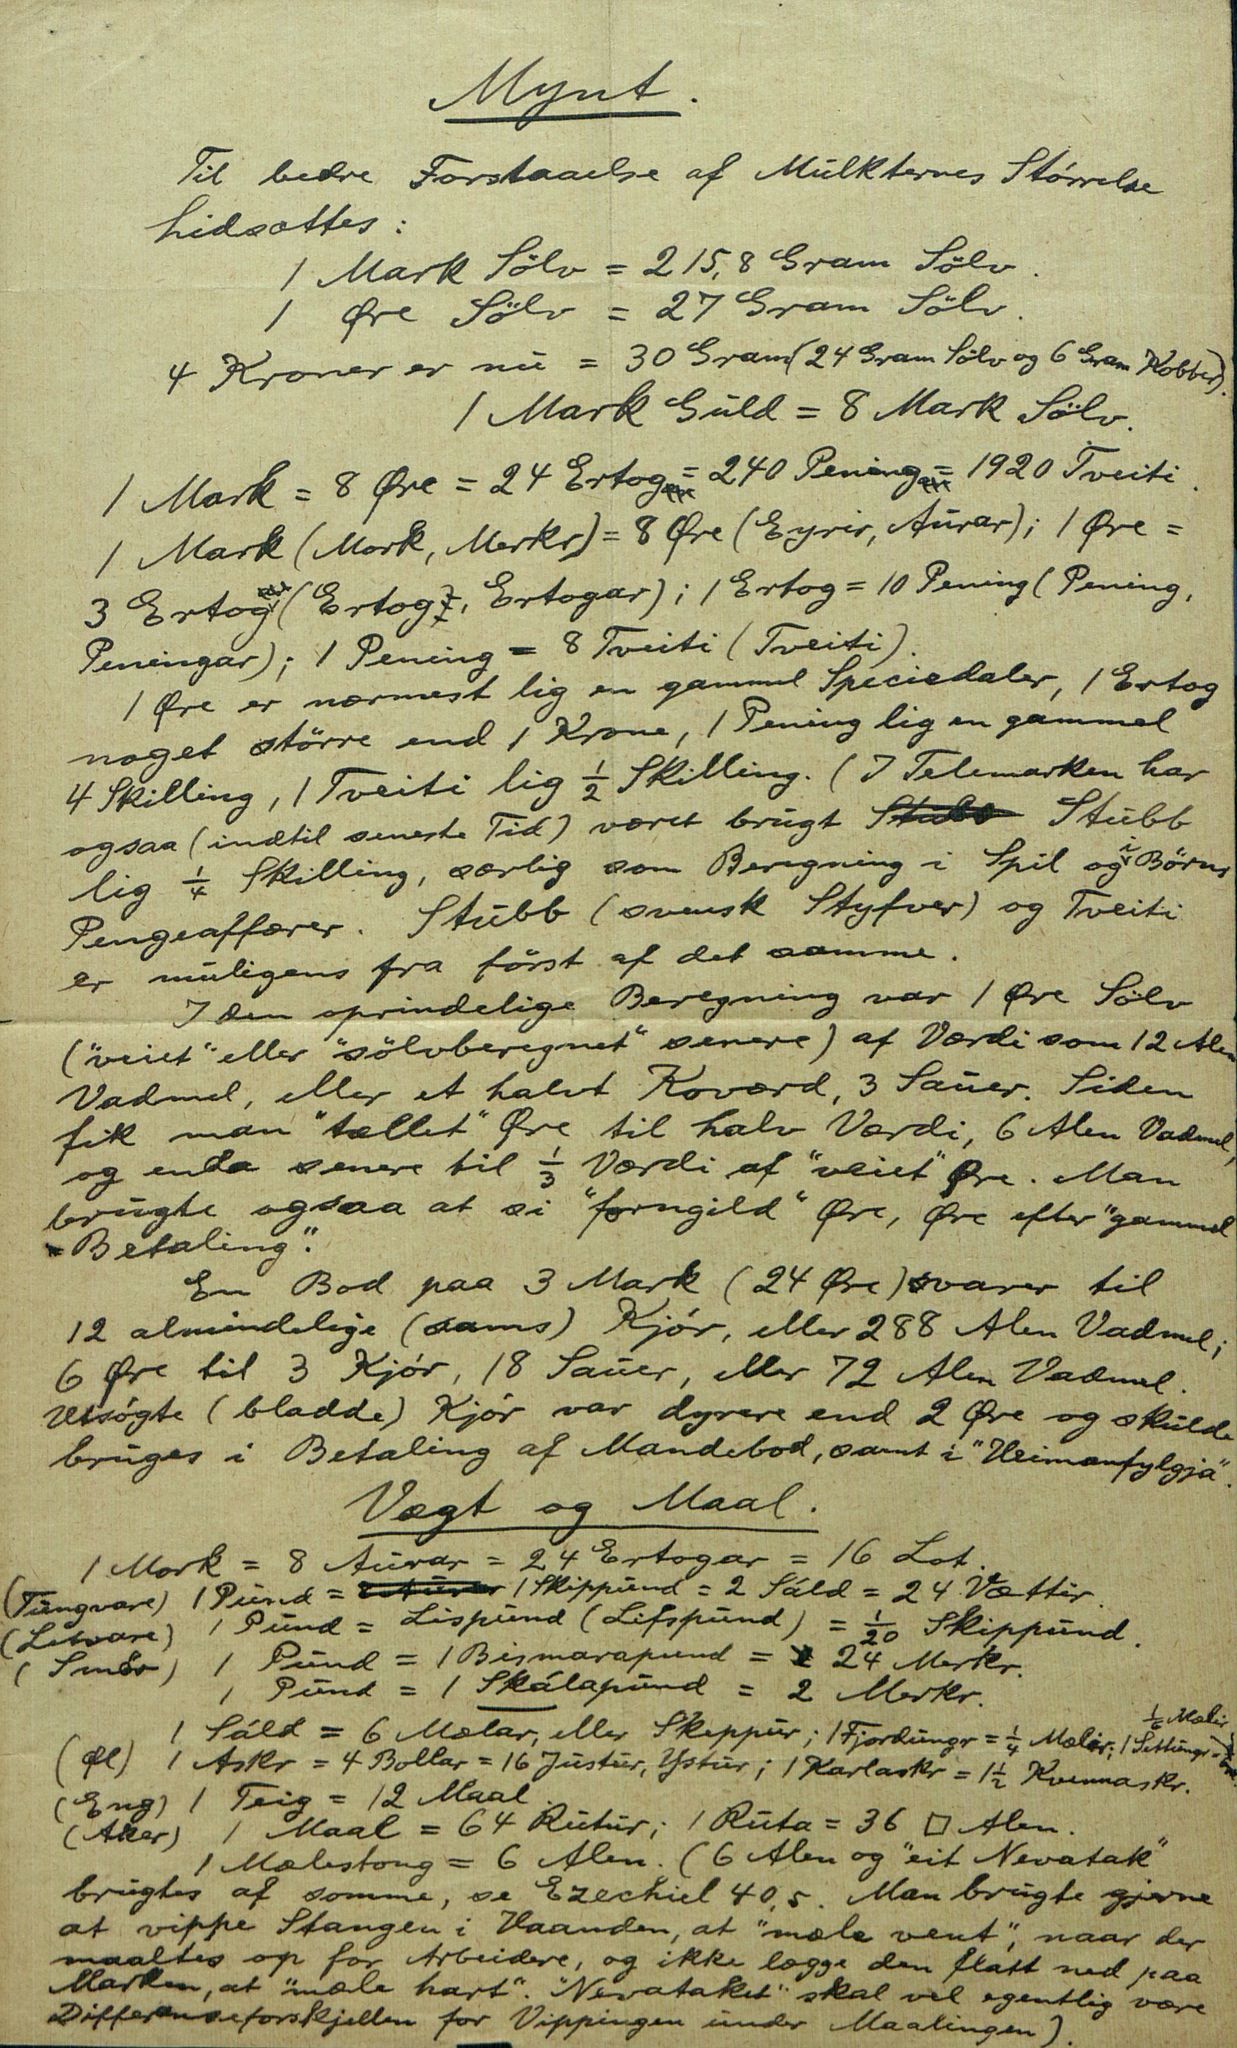 Mynt.
Til bedre Forstaaelse af Mulkternes Størrelse
hidsættes:
1 Mark Sölv = 215,8 Gram Sölv.
1 Øre Sölv = 27 Gram Sölv.
4 Kroner er nu = 30 Gram (24 Gram Sölv og 6 Gram Kobber).
1 Mark Guld = 8 Mark Sölv.
1 Mark = 8 Øre = 24 Ertog = 240 Pening = 1920 Tveiti.
1 Mark (Mork, Merkr) = 8 Øre (Eyrir, Aurar); 1 Øre =
3 Ertog (Ertog, Ertogar); 1 Ertog = 10 Pening (Pening,
Peningar); 1 Pening = 8 Tveiti (Tveiti).
1 Øre er nærmest lig en gammel Speciedaler, 1 Ertog
noget større end 1 Krone, 1 Pening lig en gammel
4 Skilling, 1 Tveiti lig ½ Skilling. (I Telemarken har
ogsaa (indtil seneste Tid) været brugt Stubb
lig ¼ Skilling, særlig som Beregning i Spil og i Börns
Pengeaffærer. Stubb (svensk Styfver) og Tveiti
er muligens fra först af det samme.
I den oprindelige Beregning var 1 Øre Sölv
("veiet" eller "sölvberegnet" senere) af Værdi som 12 Alen
Vadmel, eller et halvt Koværd, 3 Sauer. Siden
fik man "tællet" Øre til halv Værdi, 6 Alen Vadmel,
og enda senere til ⅓ Værdi af "veiet" Øre. Man
brugte ogsaa at si "forngild" Øre, Øre efter "gammel
Betaling".
En Bod paa 3 Mark (24 Øre) svarer til
12 almindelige (sams) Kjór, eller 288 Alen Vadmel;
6 Øre til 3 Kjór, 18 Sauer, eller 72 Alen Vadmel.
Utsógte (bladde) Kjór var dyrere end 2 Øre og skulde
bruges i Betaling af Mandebod, samt i "Heimanfylgja".
Vægt og Maal.
1 Mork = 8 Aurar = 24 Ertogar = 16 Lot.
(Tungvare) 1 Pund = 1 Skippund = 2 Sáld = 24 Vættir.
(Letvare) 1 Pund = Lispund (Lifspund) = 1/20 Skippund.
(Smör) 1 Pund = 1 Bismarapund = 24 Merkr.
1 Pund = 1 Skálapund = 2 Merkr.
1 Sáld = 6 Mælar, eller Skeppur; 1 Fjordungr = ¼ Mælir; 1 Settungr = 1/6 Mælir
(Øl) 1 Askr = 4 Bollar = 16 Justur, Ystur; 1 Karlaskr = 1½ Kvennaskr.
(Eng) 1 Teig = 12 Maal.
(Aker) 1 Maal = 64 Rutur; 1 Ruta = 36 □ Alen.
1 Mælestong = 6 Alen. (6 Alen og "eit Nevatak"
brugtes af somme, se Ezechiel 40,5. Man brugte gjerne
at vippe Stangen i Haanden, at "mæle vent", naar der
maaltes op for Arbeidere, og ikke lægge den flatt ned paa
Marken, at "mæle hart". "Nevataket" skal vel egentlig være
Differenseforskjellen for Vippingen under Maalingen).